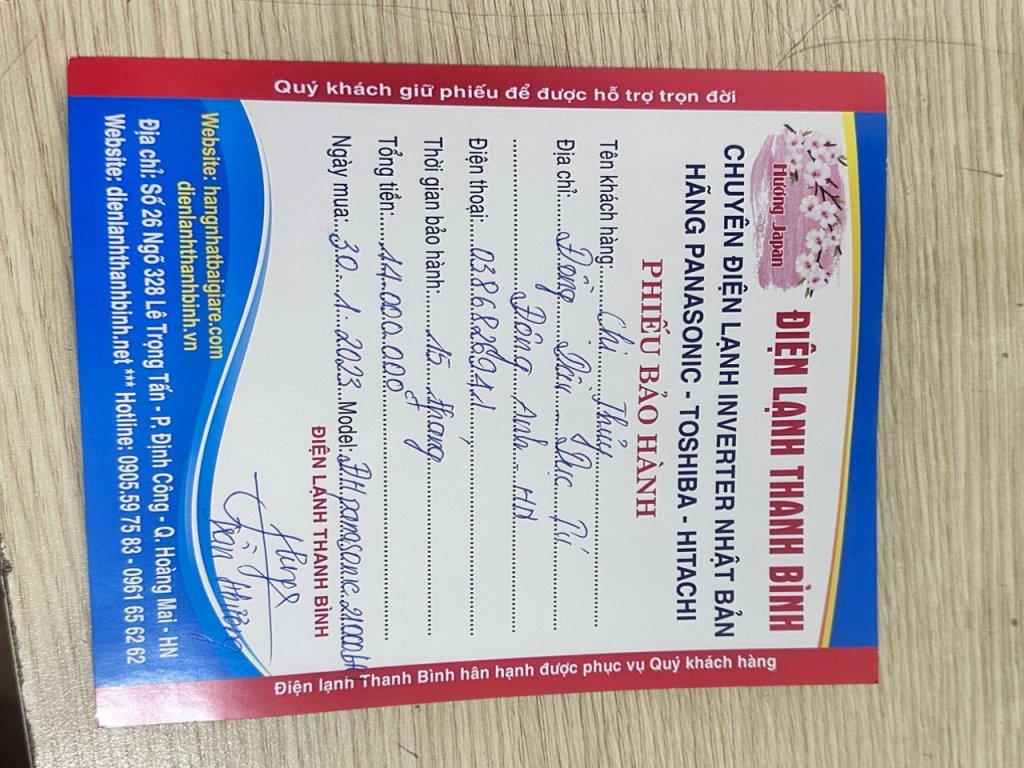 Quý khách giữ phiếu để được hỗ trợ trọn đời
Hương Japan
ĐIỆN LẠNH THANH BÌNH
CHUYÊN ĐIỆN LẠNH INVERTER NHẬT BẢN
HÃNG PANASONIC - TOSHIBA - HITACHI
PHIẾU BẢO HÀNH
Tên khách hàng: Chị Thủy
Địa chỉ: Đồng Dầu Dục Tú
Đông Anh - HN
Điện thoại: 0386826911
Thời gian bảo hành: 15 tháng
Tổng tiền: 14.000.000đ
Ngày mua: 30.1.2023 Model: ĐH panasonic 21000
ĐIỆN LẠNH THANH BÌNH
Website: hangnhatbaigiare.com
dienlanhthanhbinh.vn
Địa chỉ: Số 26 Ngõ 328 Lê Trọng Tấn - P. Định Công - Q. Hoàng Mai - HN
Website: dienlanhthanhbinh.net *** Hotline: 0905.59 75 83 - 0961 65 62 62
Điện lạnh Thanh Bình hân hạnh được phục vụ Quý khách hàng